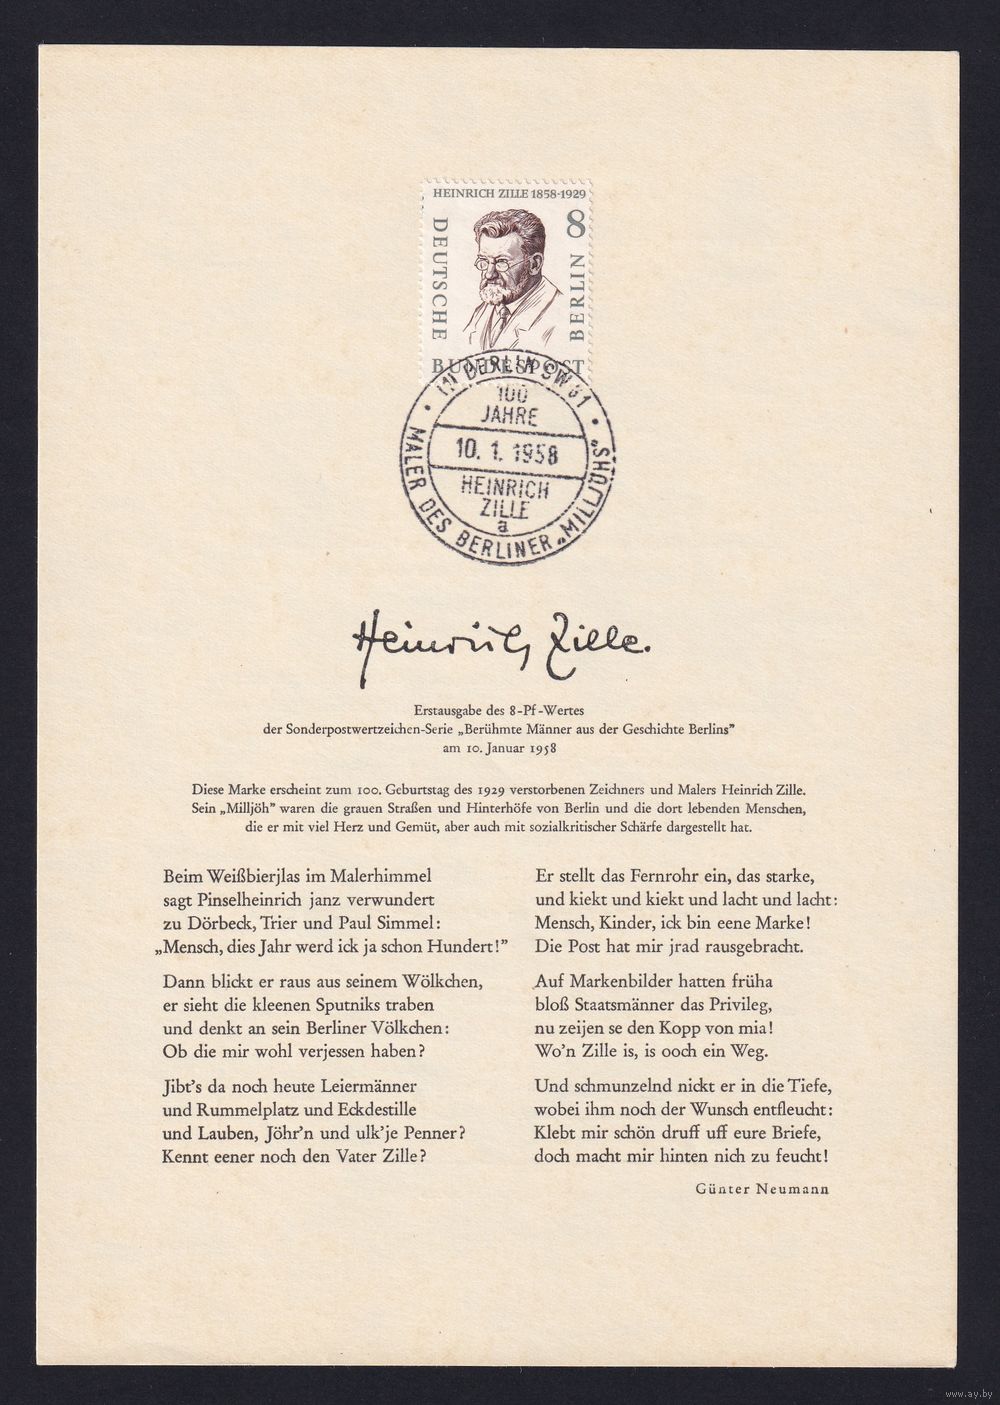 HEINRICH ZILLE 1858-1929
8
DEUTSCHE
BUNDESPOST
BERLIN
(1) BERLIN SW 61
100
JAHRE
10. 1. 1958
HEINRICH
ZILLE
a
MALER DES BERLINER „MILLJÖHS“
Heinrich Zille.
Erstausgabe des 8-Pf-Wertes
der Sonderpostwertzeichen-Serie „Berühmte Männer aus der Geschichte Berlins”
am 10. Januar 1958
Diese Marke erscheint zum 100. Geburtstag des 1929 verstorbenen Zeichners und Malers Heinrich Zille.
Sein „Milljöh” waren die grauen Straßen und Hinterhöfe von Berlin und die dort lebenden Menschen,
die er mit viel Herz und Gemüt, aber auch mit sozialkritischer Schärfe dargestellt hat.
Beim Weißbierjlas im Malerhimmel
sagt Pinselheinrich janz verwundert
zu Dörbeck, Trier und Paul Simmel:
„Mensch, dies Jahr werd ick ja schon Hundert!”
Dann blickt er raus aus seinem Wölkchen,
er sieht die kleenen Sputniks traben
und denkt an sein Berliner Völkchen:
Ob die mir wohl verjessen haben?
Jibt’s da noch heute Leiermänner
und Rummelplatz und Eckdestille
und Lauben, Jöhr’n und ulk’je Penner?
Kennt eener noch den Vater Zille?
Er stellt das Fernrohr ein, das starke,
und kiekt und kiekt und lacht und lacht:
Mensch, Kinder, ick bin eene Marke!
Die Post hat mir jrad rausgebracht.
Auf Markenbilder hatten früha
bloß Staatsmänner das Privileg,
nu zeijen se den Kopp von mia!
Wo’n Zille is, is ooch ein Weg.
Und schmunzelnd nickt er in die Tiefe,
wobei ihm noch der Wunsch entfleucht:
Klebt mir schön druff uff eure Briefe,
doch macht mir hinten nich zu feucht!
Günter Neumann
www.ay.by